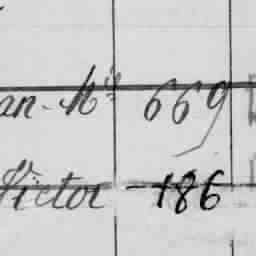 an-Mis 669
Victor 186